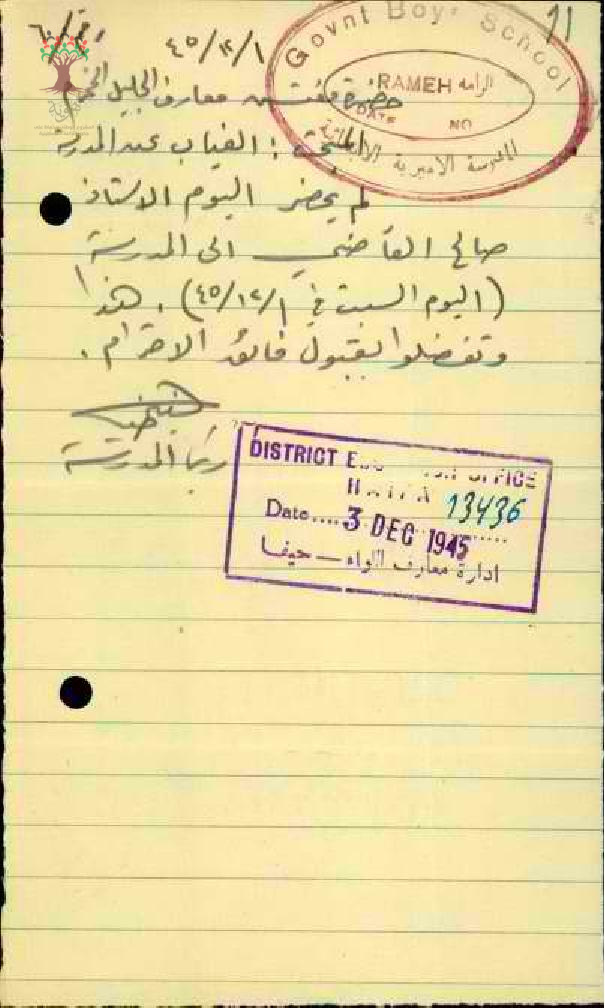 11
Govnt Boys School
RAMEH الرامه
DATE NO
المدرسة الاميرية
٤٥/١٢/١
حضرة مفتش معارف الجليل المحترم
المبحث : الغياب عن المدرسة
لم يحضر اليوم الاستاذ
صالح القاضي الى المدرسة
(اليوم السبت في ٤٥/١٢/١) . هذا
وتفضلوا بقبول فائق الاحترام .
المدرسة
DISTRICT OFFICE
HAIFA 13436
Date.... 3 DEC 1945
ادارة معارف اللواء — حيفا